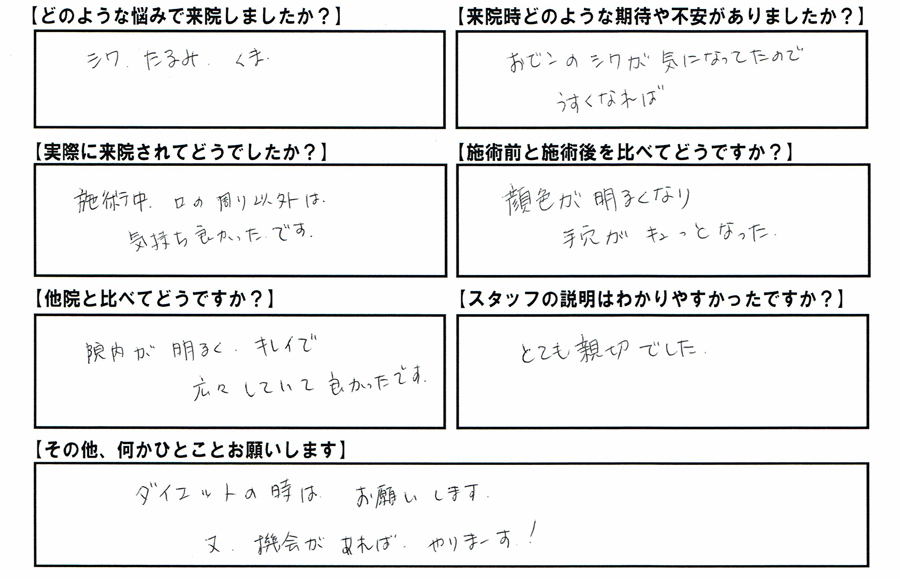 【どのような悩みで来院しましたか？】
シワ、たるみ、くま、
【来院時どのような期待や不安がありましたか？】
おでこのシワが気になってたので
うすくなれば
【実際に来院されてどうでしたか？】
施術中、口の周り以外は、
気持ち良かったです。
【施術前と施術後を比べてどうですか？】
顔色が明るくなり
手穴がキュっとなった。
【他院と比べてどうですか？】
院内が明るく、キレイで
広々していて良かったです。
【スタッフの説明はわかりやすかったですか？】
とても親切でした。
【その他、何かひとことお願いします】
ダイエットの時は、お願いします。
又、機会があれば、やりまーす！